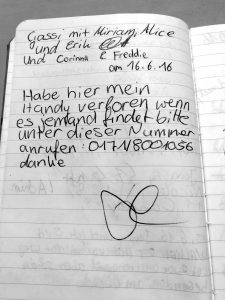 Gassi mit Miriam, Alice
und Erik
und Corinna & Freddie
am 16.6.16
Habe hier mein
Handy verloren wenn
es jemand findet bitte
unter dieser Nummer
anrufen: 017N8001056
danke